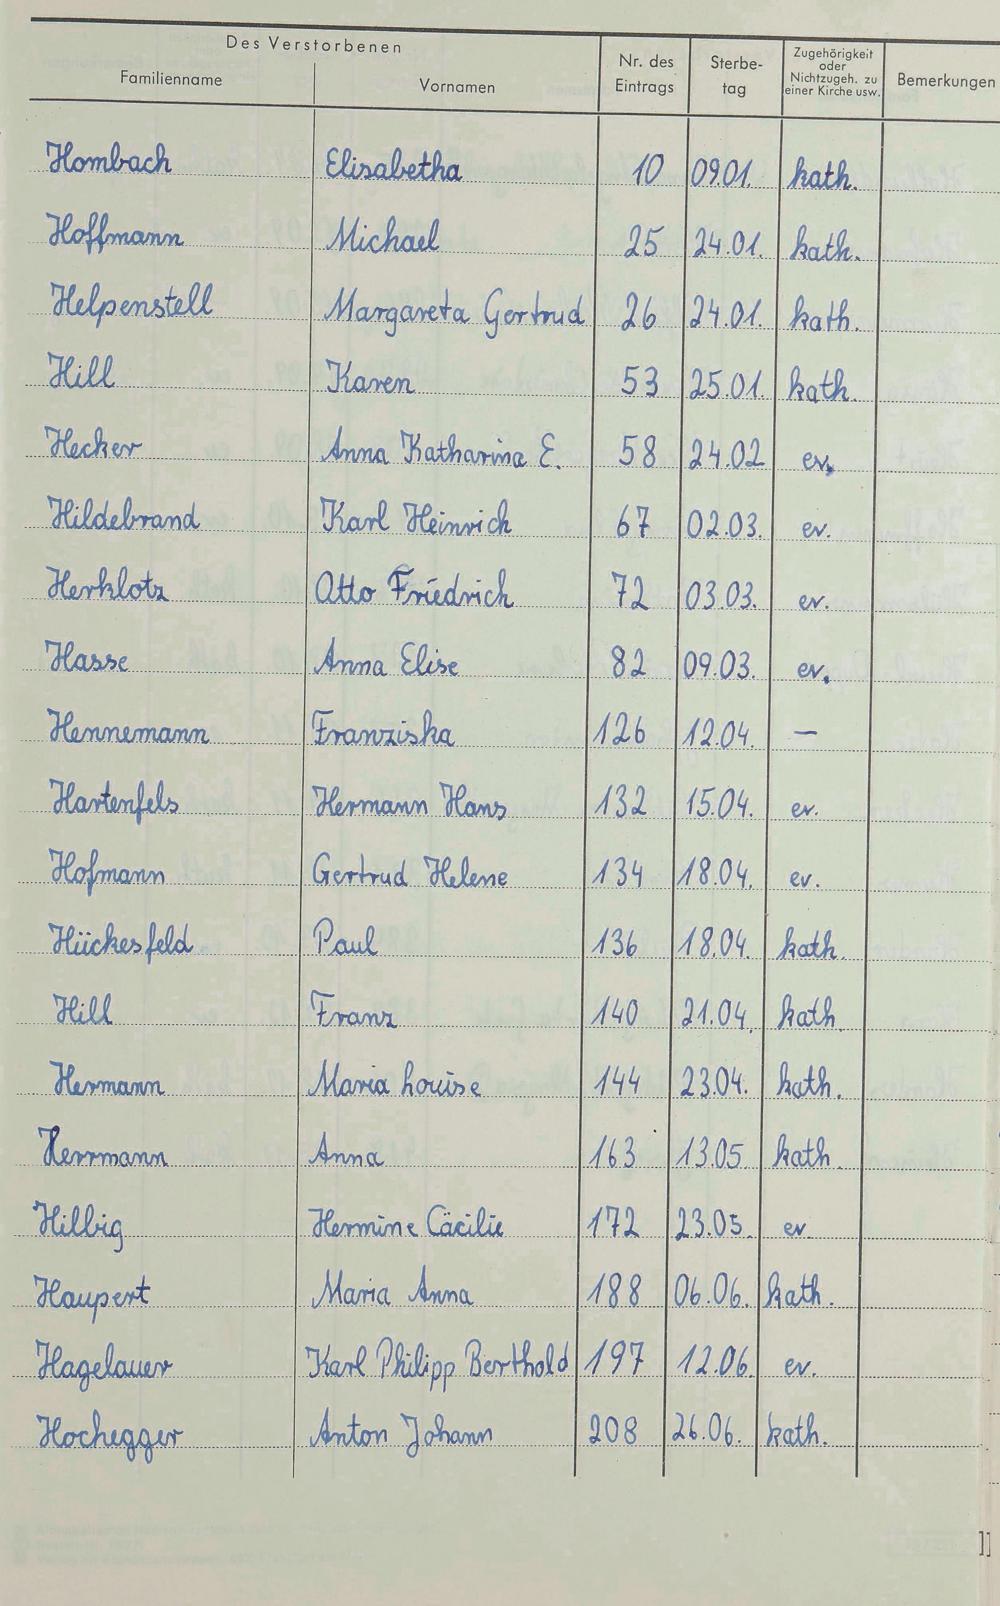 Des Verstorbenen
Familienname Vornamen Nr. des Eintrags Sterbe-tag Zugehörigkeit oder Nichtzugeh. zu einer Kirche usw. Bemerkungen
Hombach Elisabetha 10 09.01. kath.
Hoffmann Michael 25 24.01. kath.
Helpenstell Margareta Gertrud 26 24.01. kath.
Hill Karen 53 25.01. kath.
Hecker Anna Katharina E. 58 24.02 ev.
Hildebrand Karl Heinrich 67 02.03. ev.
Herklotz Otto Friedrich 72 03.03. ev.
Hasse Anna Elise 82 09.03. ev.
Hennemann Franziska 126 12.04. —
Hartenfels Hermann Hans 132 15.04. ev.
Hofmann Gertrud Helene 134 18.04. ev.
Hückesfeld Paul 136 18.04. kath.
Hill Franz 140 21.04. kath.
Hermann Maria Louise 144 23.04. kath.
Herrmann Anna 163 13.05 kath.
Hilbig Hermine Cäcilie 172 23.05. ev
Haupert Maria Anna 188 06.06. kath.
Hagelauer Karl Philipp Berthold 197 12.06. ev.
Hochegger Anton Johann 208 26.06. kath.